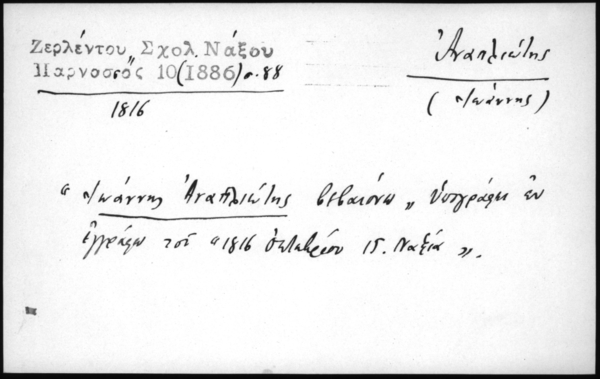 Ζερλέντου, Σχολ. Νάξου
Παρνασσὸς 10(1886)σ.88
1816
Ἀναπλιώτης
(Ἰωάννης)
"Ἰωάννης Ἀναπλιώτης βεβαιόνω„ ὑπογράφει ἐν
ἐγγράφῳ τοῦ "1816 ὀκτωβρίου 15. Ναξία„.